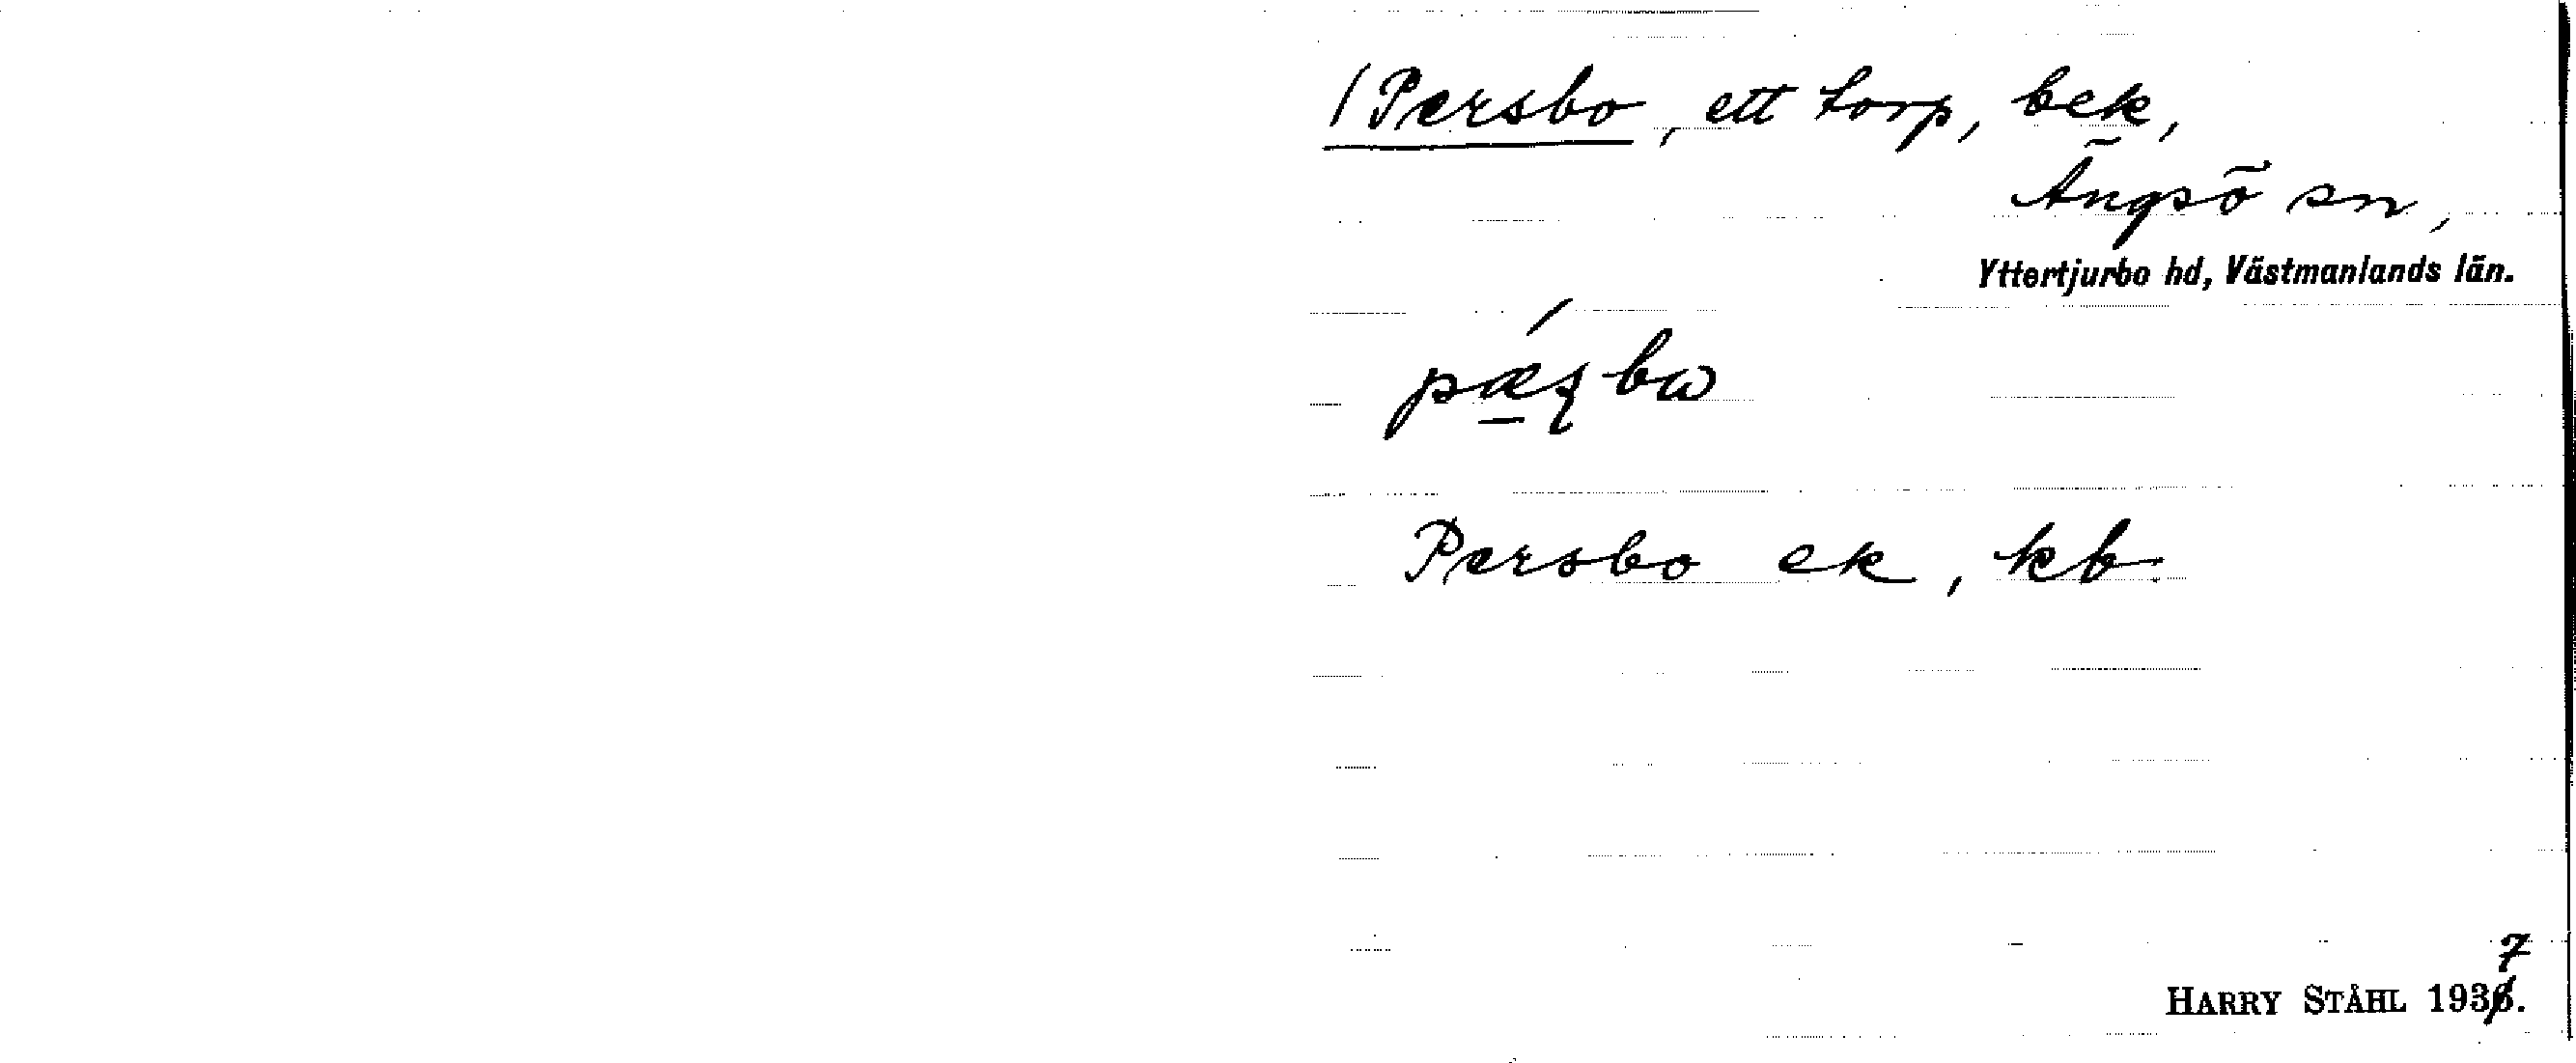 /Persbo, ett torp, bek,
Ängsö sn,
Yttertjurbo hd, Västmanlands län.
Persbo ek, kb.
7
HARRY STÅHL 1936.